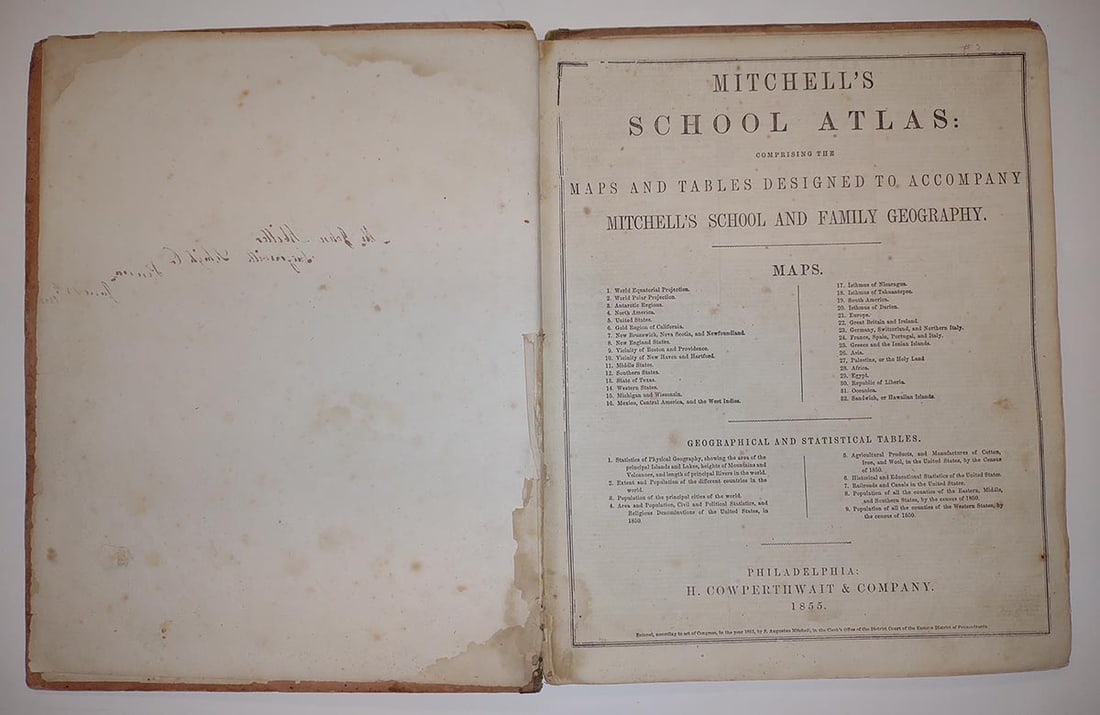 John Miller
Saegersville Lehigh Co
MITCHELL'S
SCHOOL ATLAS:
COMPRISING THE
MAPS AND TABLES DESIGNED TO ACCOMPANY
MITCHELL'S SCHOOL AND FAMILY GEOGRAPHY.
MAPS.
1. World Equatorial Projection.
2. World Polar Projection.
3. Antarctic Regions.
4. North America.
5. United States.
6. Gold Region of California.
7. New Brunswick, Nova Scotia, and Newfoundland.
8. New England States.
9. Vicinity of Boston and Providence.
10. Vicinity of New Haven and Hartford.
11. Middle States.
12. Southern States.
13. State of Texas.
14. Western States.
15. Michigan and Wisconsin.
16. Mexico, Central America, and the West Indies.
17. Isthmus of Nicaragua.
18. Isthmus of Tehuantepec.
19. South America.
20. Isthmus of Darien.
21. Europe.
22. Great Britain and Ireland.
23. Germany, Switzerland, and Northern Italy.
24. France, Spain, Portugal, and Italy.
25. Greece and the Ionian Islands.
26. Asia.
27. Palestine, or the Holy Land
28. Africa.
29. Egypt.
30. Republic of Liberia.
31. Oceanica.
32. Sandwich, or Hawaiian Islands.
GEOGRAPHICAL AND STATISTICAL TABLES.
1. Statistics of Physical Geography, showing the area of the
principal Islands and Lakes, heights of Mountains and
Volcanoes, and length of principal Rivers in the world.
2. Extent and Population of the different countries in the
world.
3. Population of the principal cities of the world.
4. Area and Population, Civil and Political Statistics, and
Religious Denominations of the United States, in
1850.
5. Agricultural Products, and Manufactures of Cotton,
Iron, and Wool, in the United States, by the Census
of 1850.
6. Historical and Educational Statistics of the United States.
7. Railroads and Canals in the United States.
8. Population of all the counties of the Eastern, Middle,
and Southern States, by the census of 1850.
9. Population of all the counties of the Western States, by
the census of 1850.
PHILADELPHIA:
H. COWPERTHWAIT & COMPANY.
1855.
Entered, according to act of Congress, in the year 1852, by S. Augustus Mitchell, in the Clerk's Office of the District Court of the Eastern District of Pennsylvania